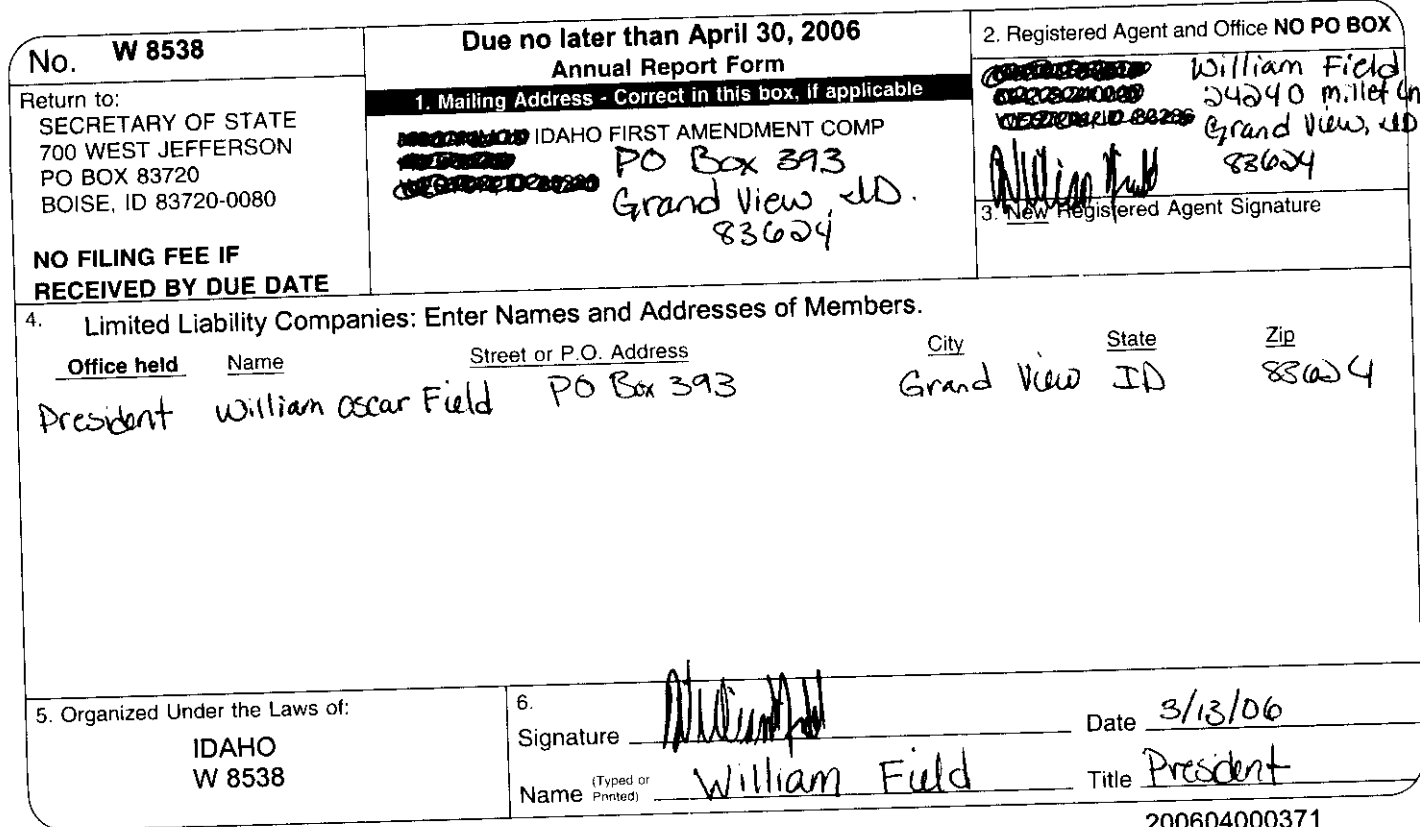 No. W 8538
Return to:
SECRETARY OF STATE
700 WEST JEFFERSON
PO BOX 83720
BOISE, ID 83720-0080
NO FILING FEE IF
RECEIVED BY DUE DATE
Due no later than April 30, 2006
Annual Report Form
1. Mailing Address - Correct in this box, if applicable
IDAHO FIRST AMENDMENT COMP
PO Box 393
Grand View, ID.
83624
2. Registered Agent and Office NO PO BOX
William Field
24240 millet Ln
Grand View, ID
83624
William Field
3. New Registered Agent Signature
4. Limited Liability Companies: Enter Names and Addresses of Members.
Office held Name Street or P.O. Address City State Zip
President William Oscar Field PO Box 393 Grand View ID 83624
5. Organized Under the Laws of:
IDAHO
W 8538
6.
Signature William Field Date 3/13/06
Name (Typed or Printed) William Field Title President
200604000371